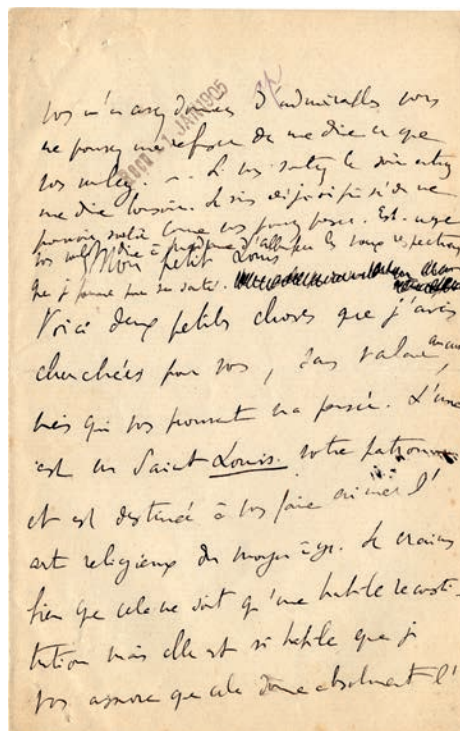 vous m'en avez donnés d'admirables vous
ne pouvez me refuser de me dire ce que
vous voulez. ... Si vous sortez le soir
me dire bonsoir. Je suis déjà si de ne
pouvoir sortir comme vous pouvez penser. Est-ce que
vous dire à Madame d' les vœux respectueux
que je forme pour sa santé.
1 JAN 1905
Mon petit Louis
Voici deux petites choses que j'avais
cherchées pour vous, sans valeur aucune,
mais qui vous prouvent ma pensée. L'une
est un Saint Louis. votre patron
et est destinée à vous faire aimer l'
art religieux du moyen âge. Je crains
bien que cela ne soit qu'une habile reconsti-
tution mais elle est si habile que je
vous assure que cela donne absolument l'